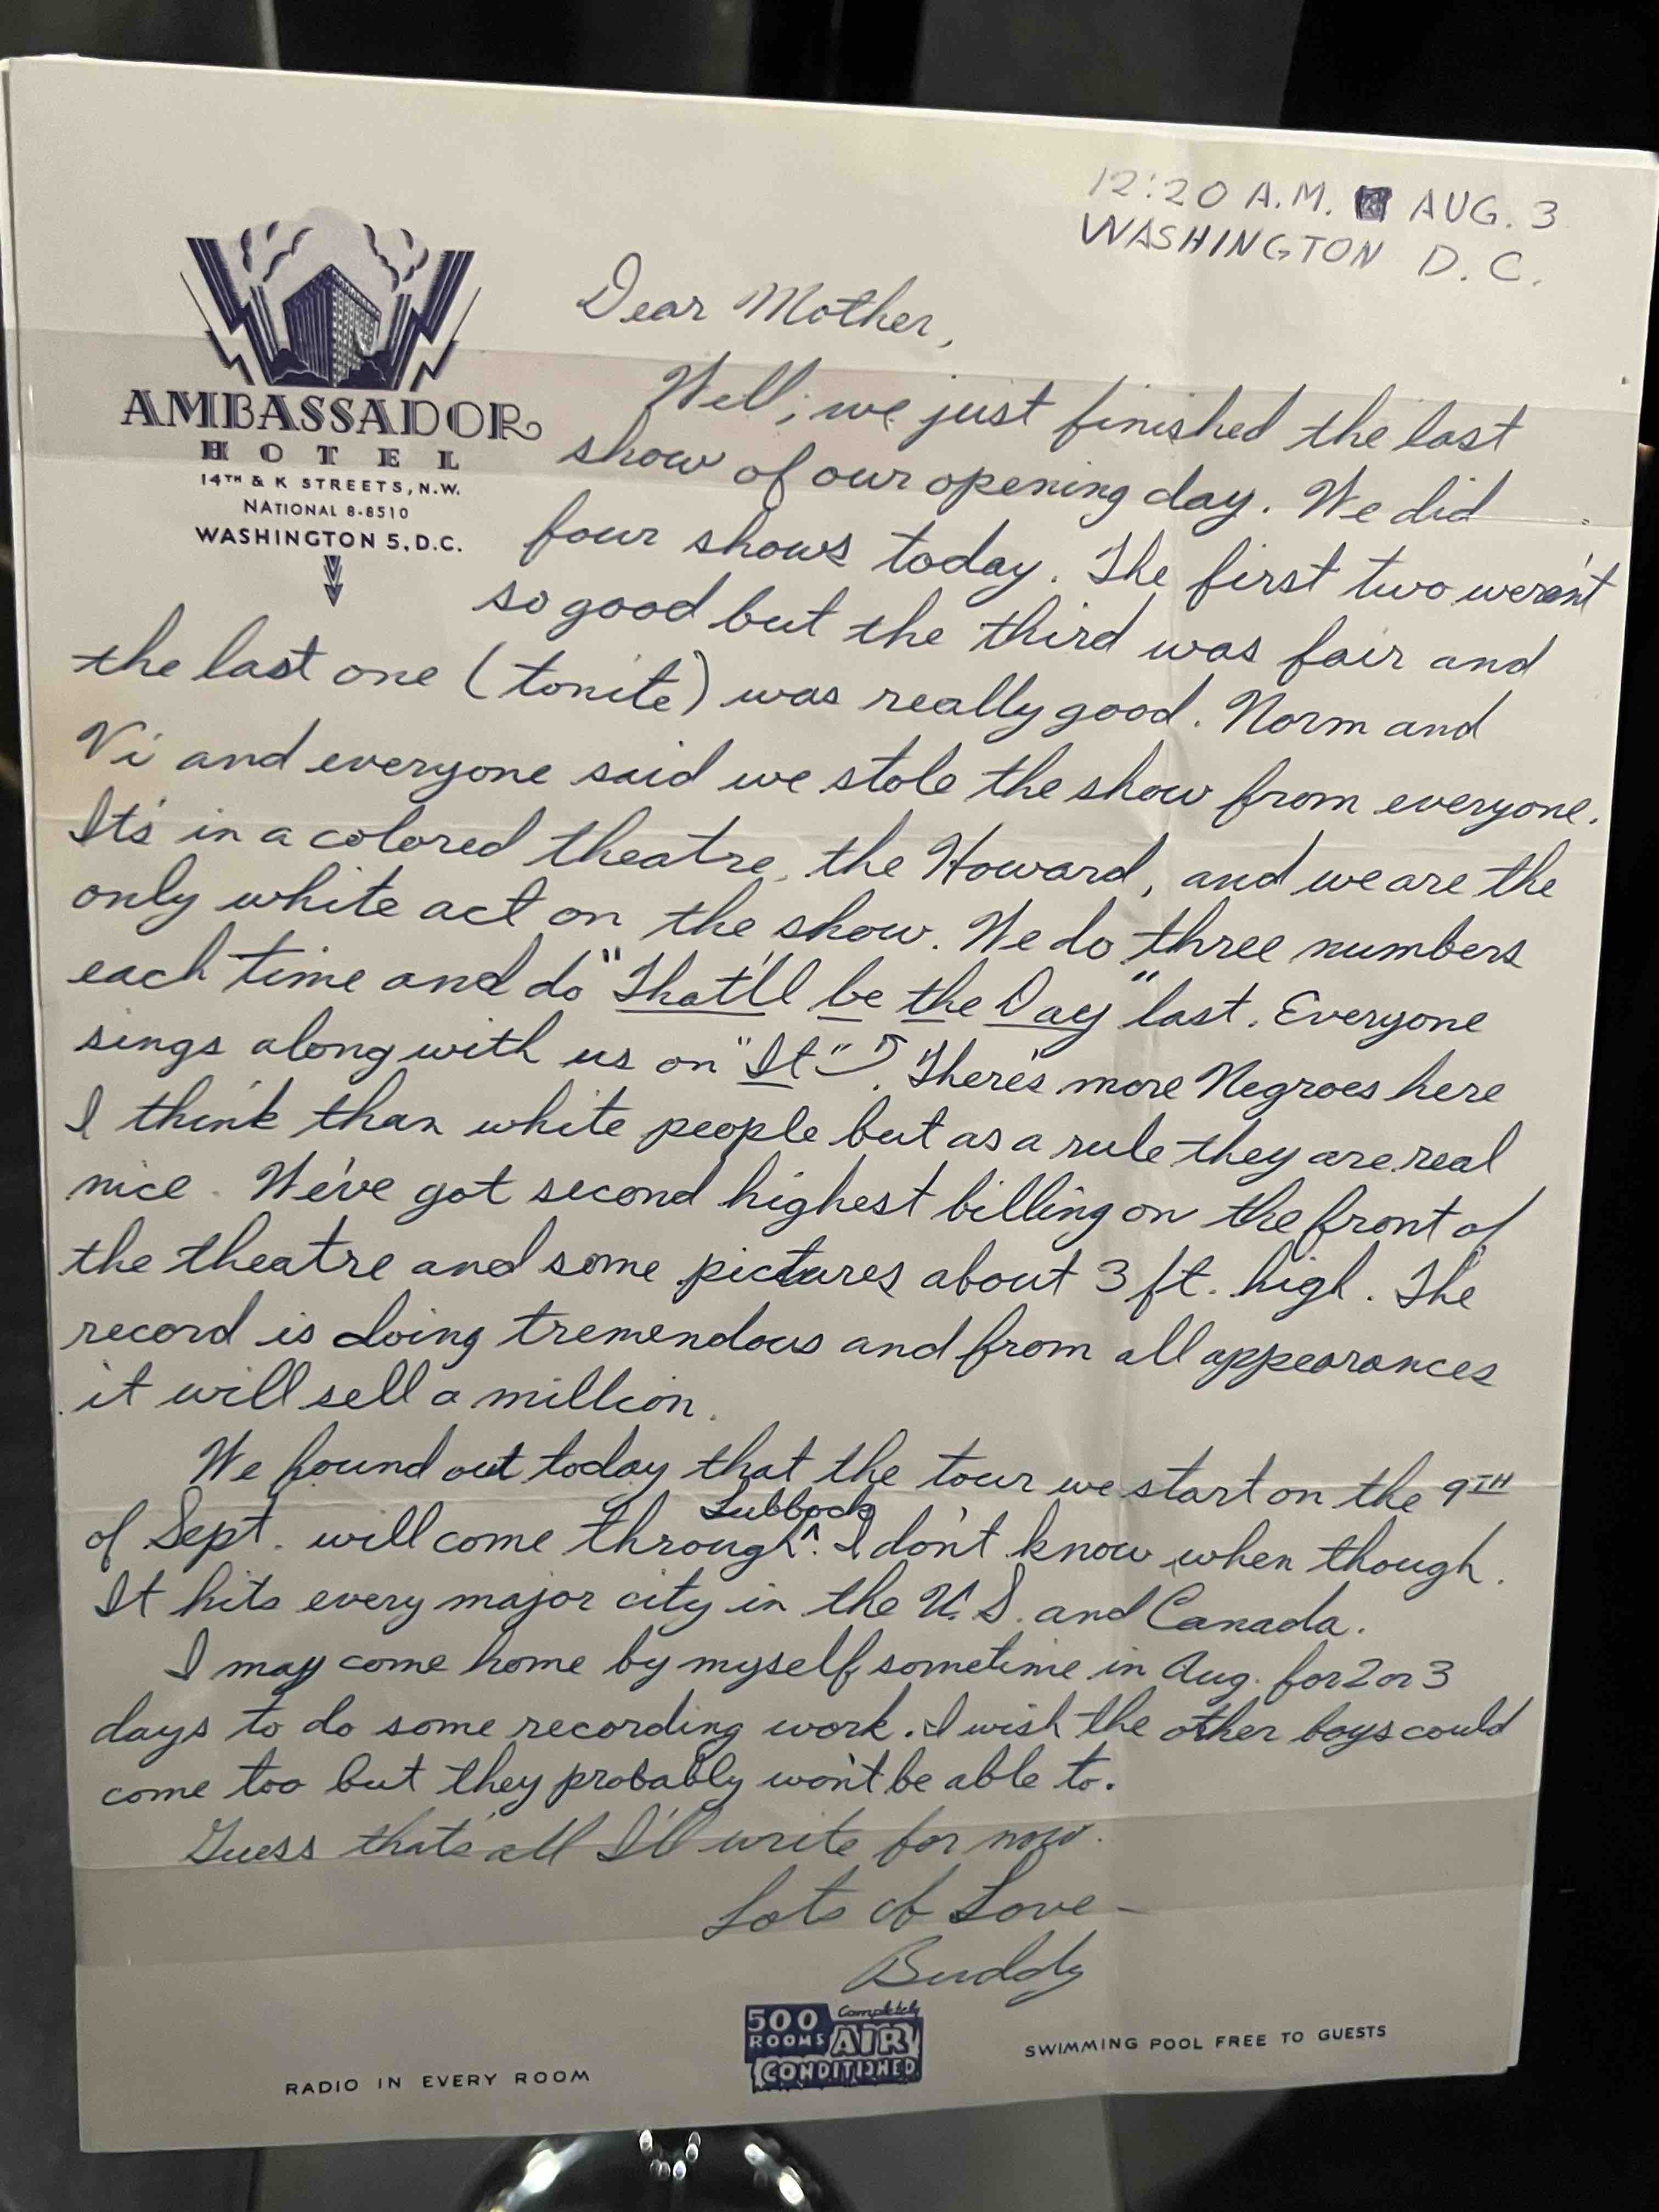 12:20 A.M. AUG. 3
WASHINGTON D.C.
AMBASSADOR
HOTEL
14TH & K STREETS, N.W.
NATIONAL 8-8510
WASHINGTON 5, D.C.
Dear Mother,
Well, we just finished the last
show of our opening day. We did
four shows today. The first two weren't
so good but the third was fair and
the last one (tonite) was really good. Norm and
Vi and everyone said we stole the show from everyone.
It's in a colored theatre, the Howard, and we are the
only white act on the show. We do three numbers
each time and do "That'll be the Day" last. Everyone
sings along with us on "It". There's more Negroes here
I think than white people but as a rule they are real
nice. We've got second highest billing on the front of
the theatre and some pictures about 3 ft. high. The
record is doing tremendous and from all appearances
it will sell a million.
We found out today that the tour we start on the 9TH
of Sept. will come through ^ Lubbock. I don't know when though.
It hits every major city in the U.S. and Canada.
I may come home by myself sometime in Aug. for 2 or 3
days to do some recording work. I wish the other boys could
come too but they probably won't be able to.
Guess that's all I'll write for now.
Lots of Love –
Buddy
RADIO IN EVERY ROOM
500 ROOMS Completely AIR CONDITIONED
SWIMMING POOL FREE TO GUESTS